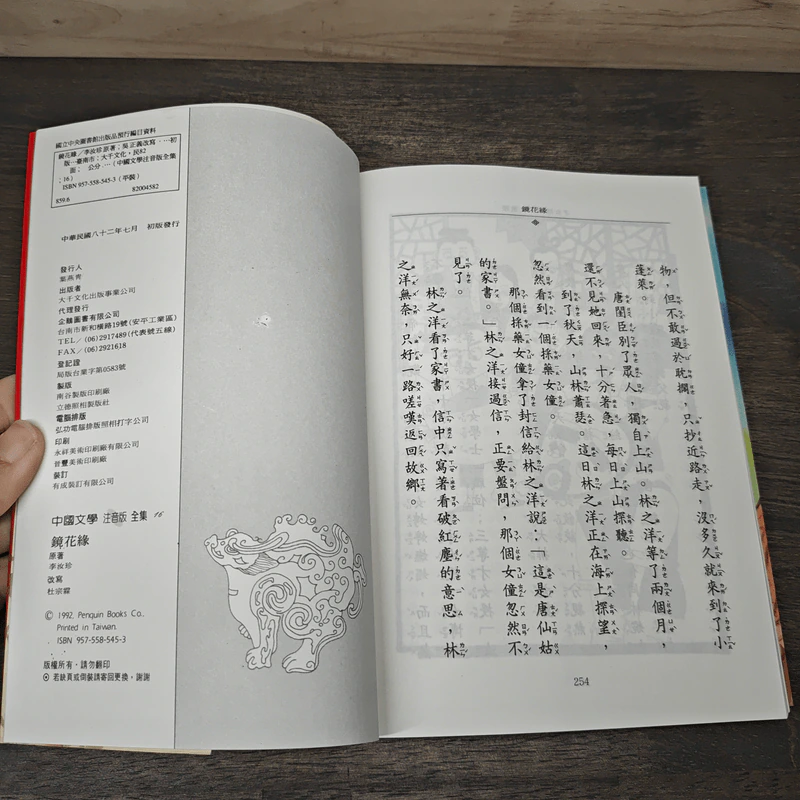 國立中央圖書館出版品預行編目資料
鏡花緣／李汝珍原著；吳正義改寫．--初
版--臺南市：大千文化，民82
面；　公分．--（中國文學注音版全集
；16）
ISBN 957-558-545-3（平裝）
859.6　82004582
中華民國八十二年七月　初版發行
發行人
葉燕青
出版者
大千文化出版事業公司
代理發行
企鵝圖書有限公司
台南市新和橫路19號(安平工業區)
TEL／(06)2917489(代表號五線)
FAX／(06)2921618
登記證
局版台業字第0583號
製版
南谷製版印刷廠
立德照相製版社
電腦排版
弘功電腦排版照相打字公司
印刷
永祥美術印刷廠有限公司
普豐美術印刷廠
裝訂
有成裝訂有限公司
中國文學 注音版 全集 16
鏡花緣
原著
李汝珍
改寫
杜宗霖
© 1992, Penguin Books Co.,
Printed in Taiwan.
ISBN 957-558-545-3
版權所有，請勿翻印
⊙ 若缺頁或倒裝請寄回更換，謝謝
鏡花緣
物，但不敢過於耽擱，只抄近路走，沒多久就來到了小
蓬萊。
唐閨臣別了眾人，獨自上山。林之洋等了兩個月，
還不見她回來，十分著急，每日上山探聽。
到了秋天，山林蕭瑟。這日林之洋正在海上探望，
忽然看到一個採藥女僮。
那個採藥女僮拿了封信給林之洋說：「這是唐仙姑
的家書。」林之洋接過信，正要盤問，那個女僮忽然不
見了。
林之洋看了家書，信中只寫著看破紅塵的意思，林
之洋無奈，只好一路嗟嘆返回故鄉。
254